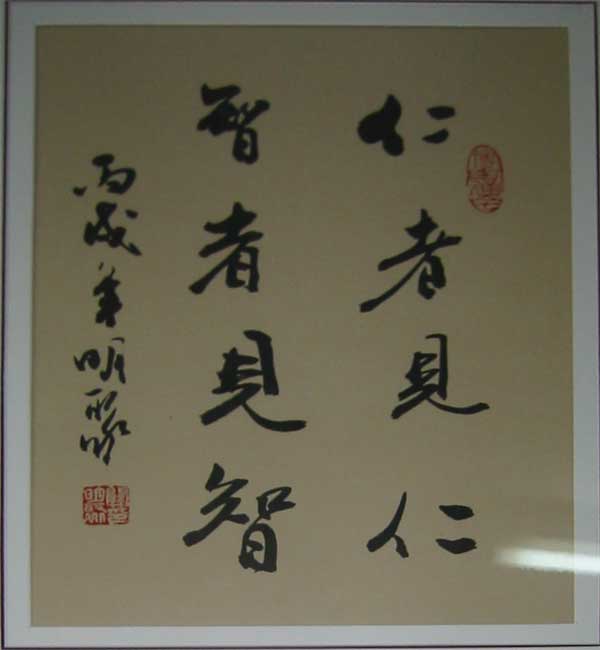 仁者見仁
智者見智
丙戌年明